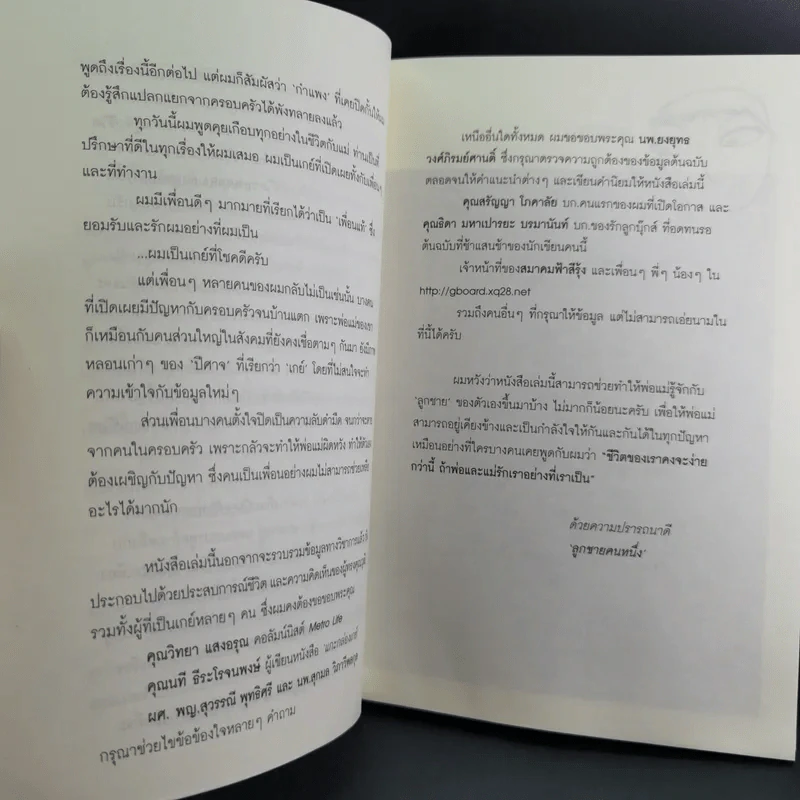 พูดถึงเรื่องนี้อีกต่อไป แต่ผมก็สัมผัสว่า 'กำแพง' ที่เคยปิดกั้นให้ผม
ต้องรู้สึกแปลกแยกจากครอบครัวได้พังทลายลงแล้ว
ทุกวันนี้ผมพูดคุยเกือบทุกอย่างในชีวิตกับแม่ ท่านเป็นที่
ปรึกษาที่ดีในทุกเรื่องให้ผมเสมอ ผมเป็นเกย์ที่เปิดเผยทั้งกับเพื่อนๆ
และที่ทำงาน
ผมมีเพื่อนดีๆ มากมายที่เรียกได้ว่าเป็น 'เพื่อนแท้' ซึ่ง
ยอมรับและรักผมอย่างที่ผมเป็น
...ผมเป็นเกย์ที่โชคดีครับ
แต่เพื่อนๆ หลายคนของผมกลับไม่เป็นเช่นนั้น บางคน
ที่เปิดเผยมีปัญหากับครอบครัวจนบ้านแตก เพราะพ่อแม่ของเขา
ก็เหมือนกับคนส่วนใหญ่ในสังคมที่ยังคงเชื่อตามๆ กันมา ยังมีภาพ
หลอนเก่าๆ ของ 'ปีศาจ' ที่เรียกว่า 'เกย์' โดยที่ไม่สนใจจะทำ
ความเข้าใจกับข้อมูลใหม่ๆ
ส่วนเพื่อนบางคนตั้งใจปิดเป็นความลับดำมืด จนกว่าจะตาย
จากคนในครอบครัว เพราะกลัวจะทำให้พ่อแม่ผิดหวัง ทำให้
ต้องเผชิญกับปัญหา ซึ่งคนเป็นเพื่อนอย่างผมไม่สามารถช่วยเหลือ
อะไรได้มากนัก
หนังสือเล่มนี้นอกจากจะรวบรวมข้อมูลทางวิชาการแล้ว
ประกอบไปด้วยประสบการณ์ชีวิต และความคิดเห็นของผู้ทรงคุณวุฒิ
รวมทั้งผู้ที่เป็นเกย์หลายๆ คน ซึ่งผมคงต้องขอขอบพระคุณ
คุณวิทยา แสงอรุณ คอลัมน์นิสต์ Metro Life
คุณนที ธีระโรจนพงษ์ ผู้เขียนหนังสือ 'แกะกล่องเกย์'
ผศ. พญ.สุวรรณี พุทธิศรี และ นพ.สุกมล วิภาวีพลกุล
กรุณาช่วยไขข้อข้องใจหลายๆ คำถาม
เหนืออื่นใดทั้งหมด ผมขอขอบพระคุณ นพ.ยงยุทธ
วงศ์ภิรมย์ศานติ์ ซึ่งกรุณาตรวจความถูกต้องของข้อมูลต้นฉบับ
ตลอดจนให้คำแนะนำต่างๆ และเขียนคำนิยมให้หนังสือเล่มนี้
คุณสรัญญา โภคาลัย บก.คนแรกของผมที่เปิดโอกาส และ
คุณธิดา มหาเปารยะ บรมานันท์ บก.ของรักลูกบุ๊กส์ ที่อดทนรอ
ต้นฉบับที่ช้าแสนช้าของนักเขียนคนนี้
เจ้าหน้าที่ของสมาคมฟ้าสีรุ้ง และเพื่อนๆ พี่ๆ น้องๆ ใน
http://gboard.xq28.net
รวมถึงคนอื่นๆ ที่กรุณาให้ข้อมูล แต่ไม่สามารถเอ่ยนามใน
ที่นี้ได้ครับ
ผมหวังว่าหนังสือเล่มนี้สามารถช่วยทำให้พ่อแม่รู้จักกับ
'ลูกชาย' ของตัวเองขึ้นมาบ้าง ไม่มากก็น้อยนะครับ เพื่อให้พ่อแม่
สามารถอยู่เคียงข้างและเป็นกำลังใจให้กันและกันได้ในทุกปัญหา
เหมือนอย่างที่ใครบางคนเคยพูดกับผมว่า "ชีวิตของเราคงจะง่าย
กว่านี้ ถ้าพ่อและแม่รักเราอย่างที่เราเป็น"
ด้วยความปรารถนาดี
'ลูกชายคนหนึ่ง'